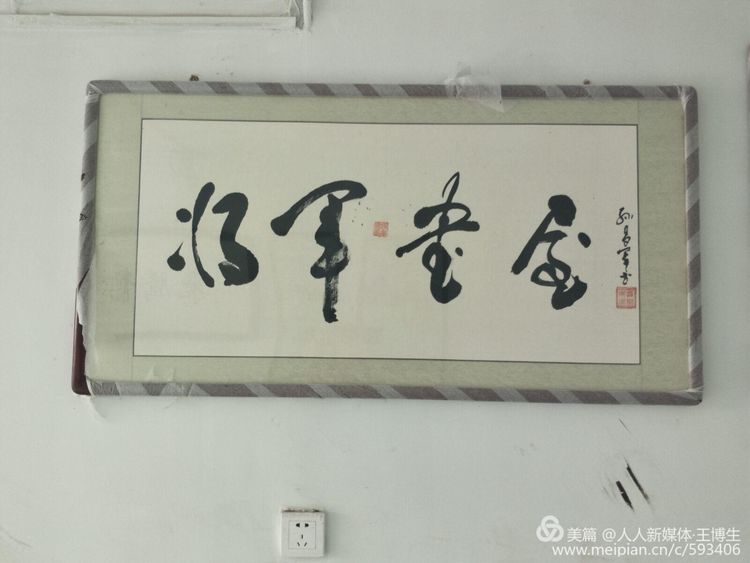 将军书屋
美篇 @人人新媒体·王博生
www.meipian.cn/c/593406